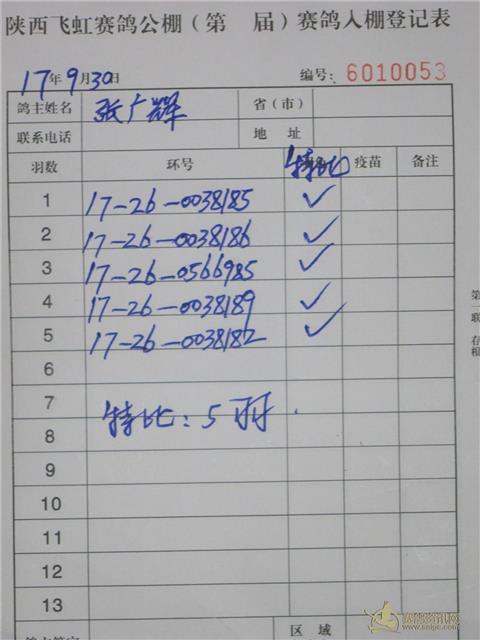 陕西飞虹赛鸽公棚（第 届）赛鸽入棚登记表
17年9月30日 编号：6010053
鸽主姓名 张广辉 省（市）
联系电话 地 址
羽数 环号 特比 疫苗 备注
1 17-26-0038185 ✓
2 17-26-0038186 ✓
3 17-26-0566985 ✓
4 17-26-0038189 ✓
5 17-26-0038182 ✓
6
7
特比：5羽.
8
9
10
11
12
13
区 域
第一联 存根
www.saige.com